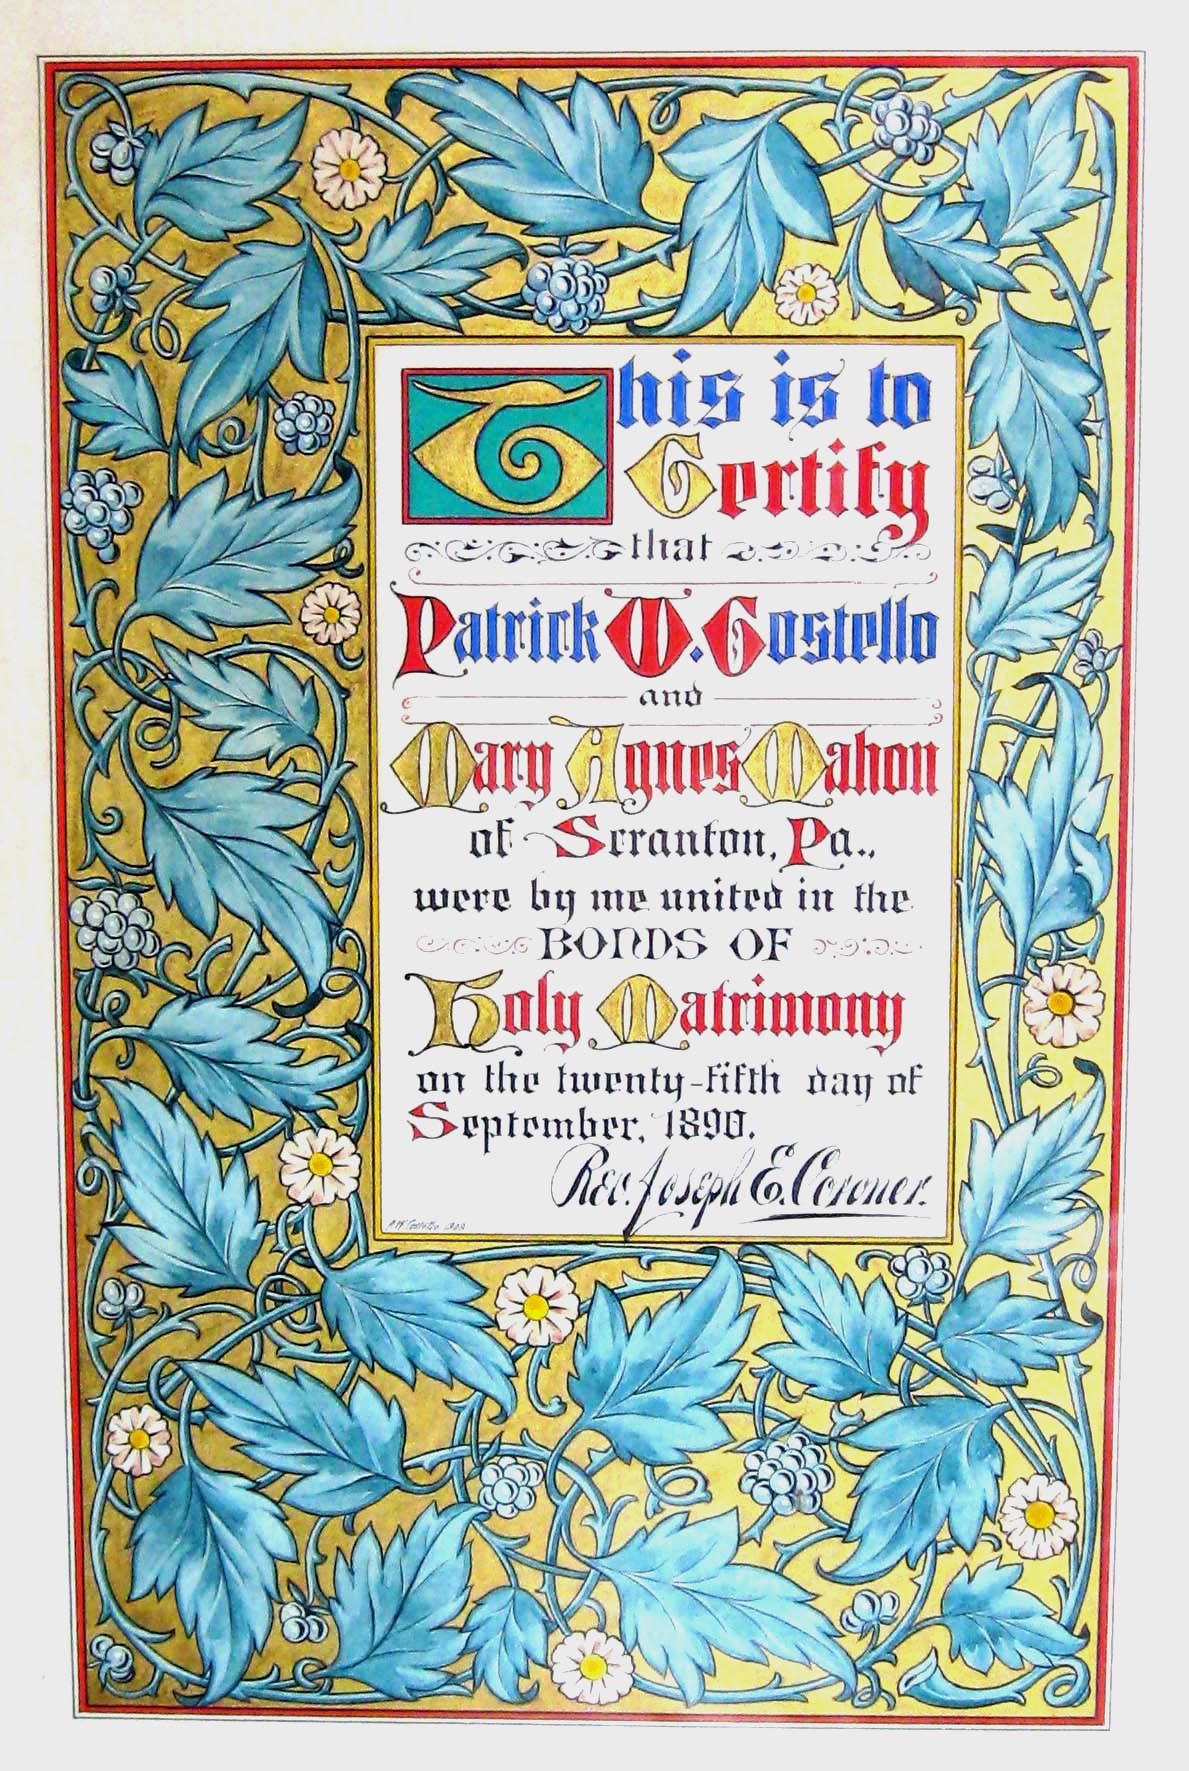 This is to
Certify
that
Patrick W. Costello
and
Mary Agnes Mahon
of Scranton, Pa.,
were by me united in the
BONDS OF
Holy Matrimony
on the twenty-fifth day of
September, 1890.
Rev. Joseph E. Coroner.
P.W. Costello